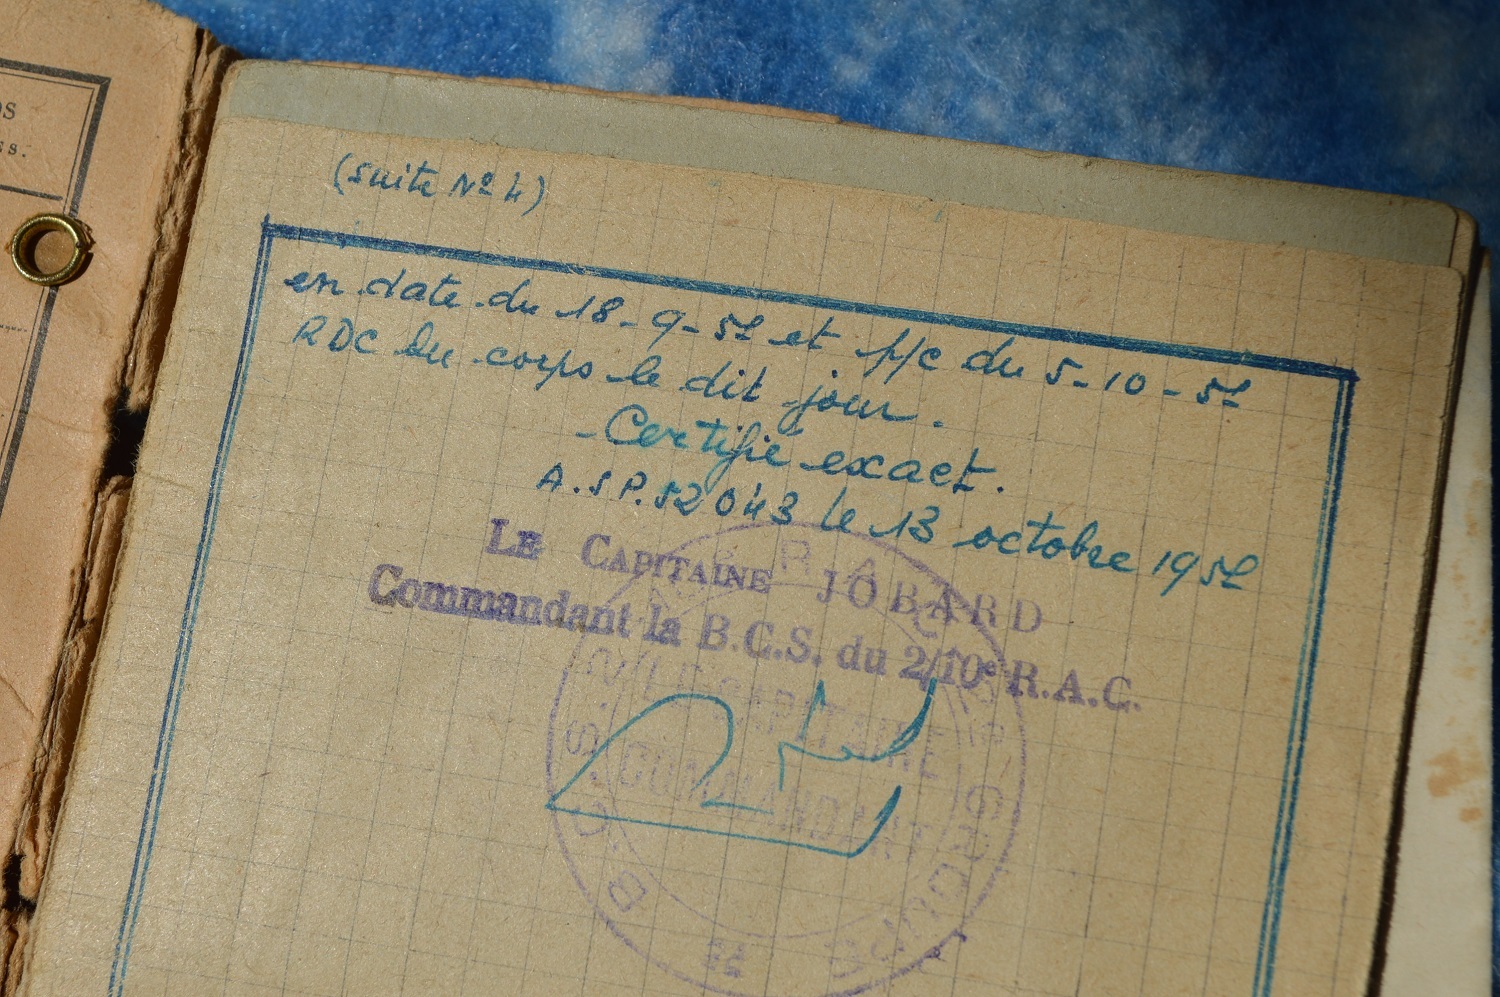 (suite Nº 4)
en date du 18-9-51 et p/c du 5-10-51
RDC du corps le dit jour.
- Certifié exact.
A.S.P. 52043 le 13 octobre 1951
LE CAPITAINE JOBARD
Commandant la B.C.S. du 2/10e R.A.C.
LE CAPITAINE
COMMANDANT
B.C.S.
GROUPE